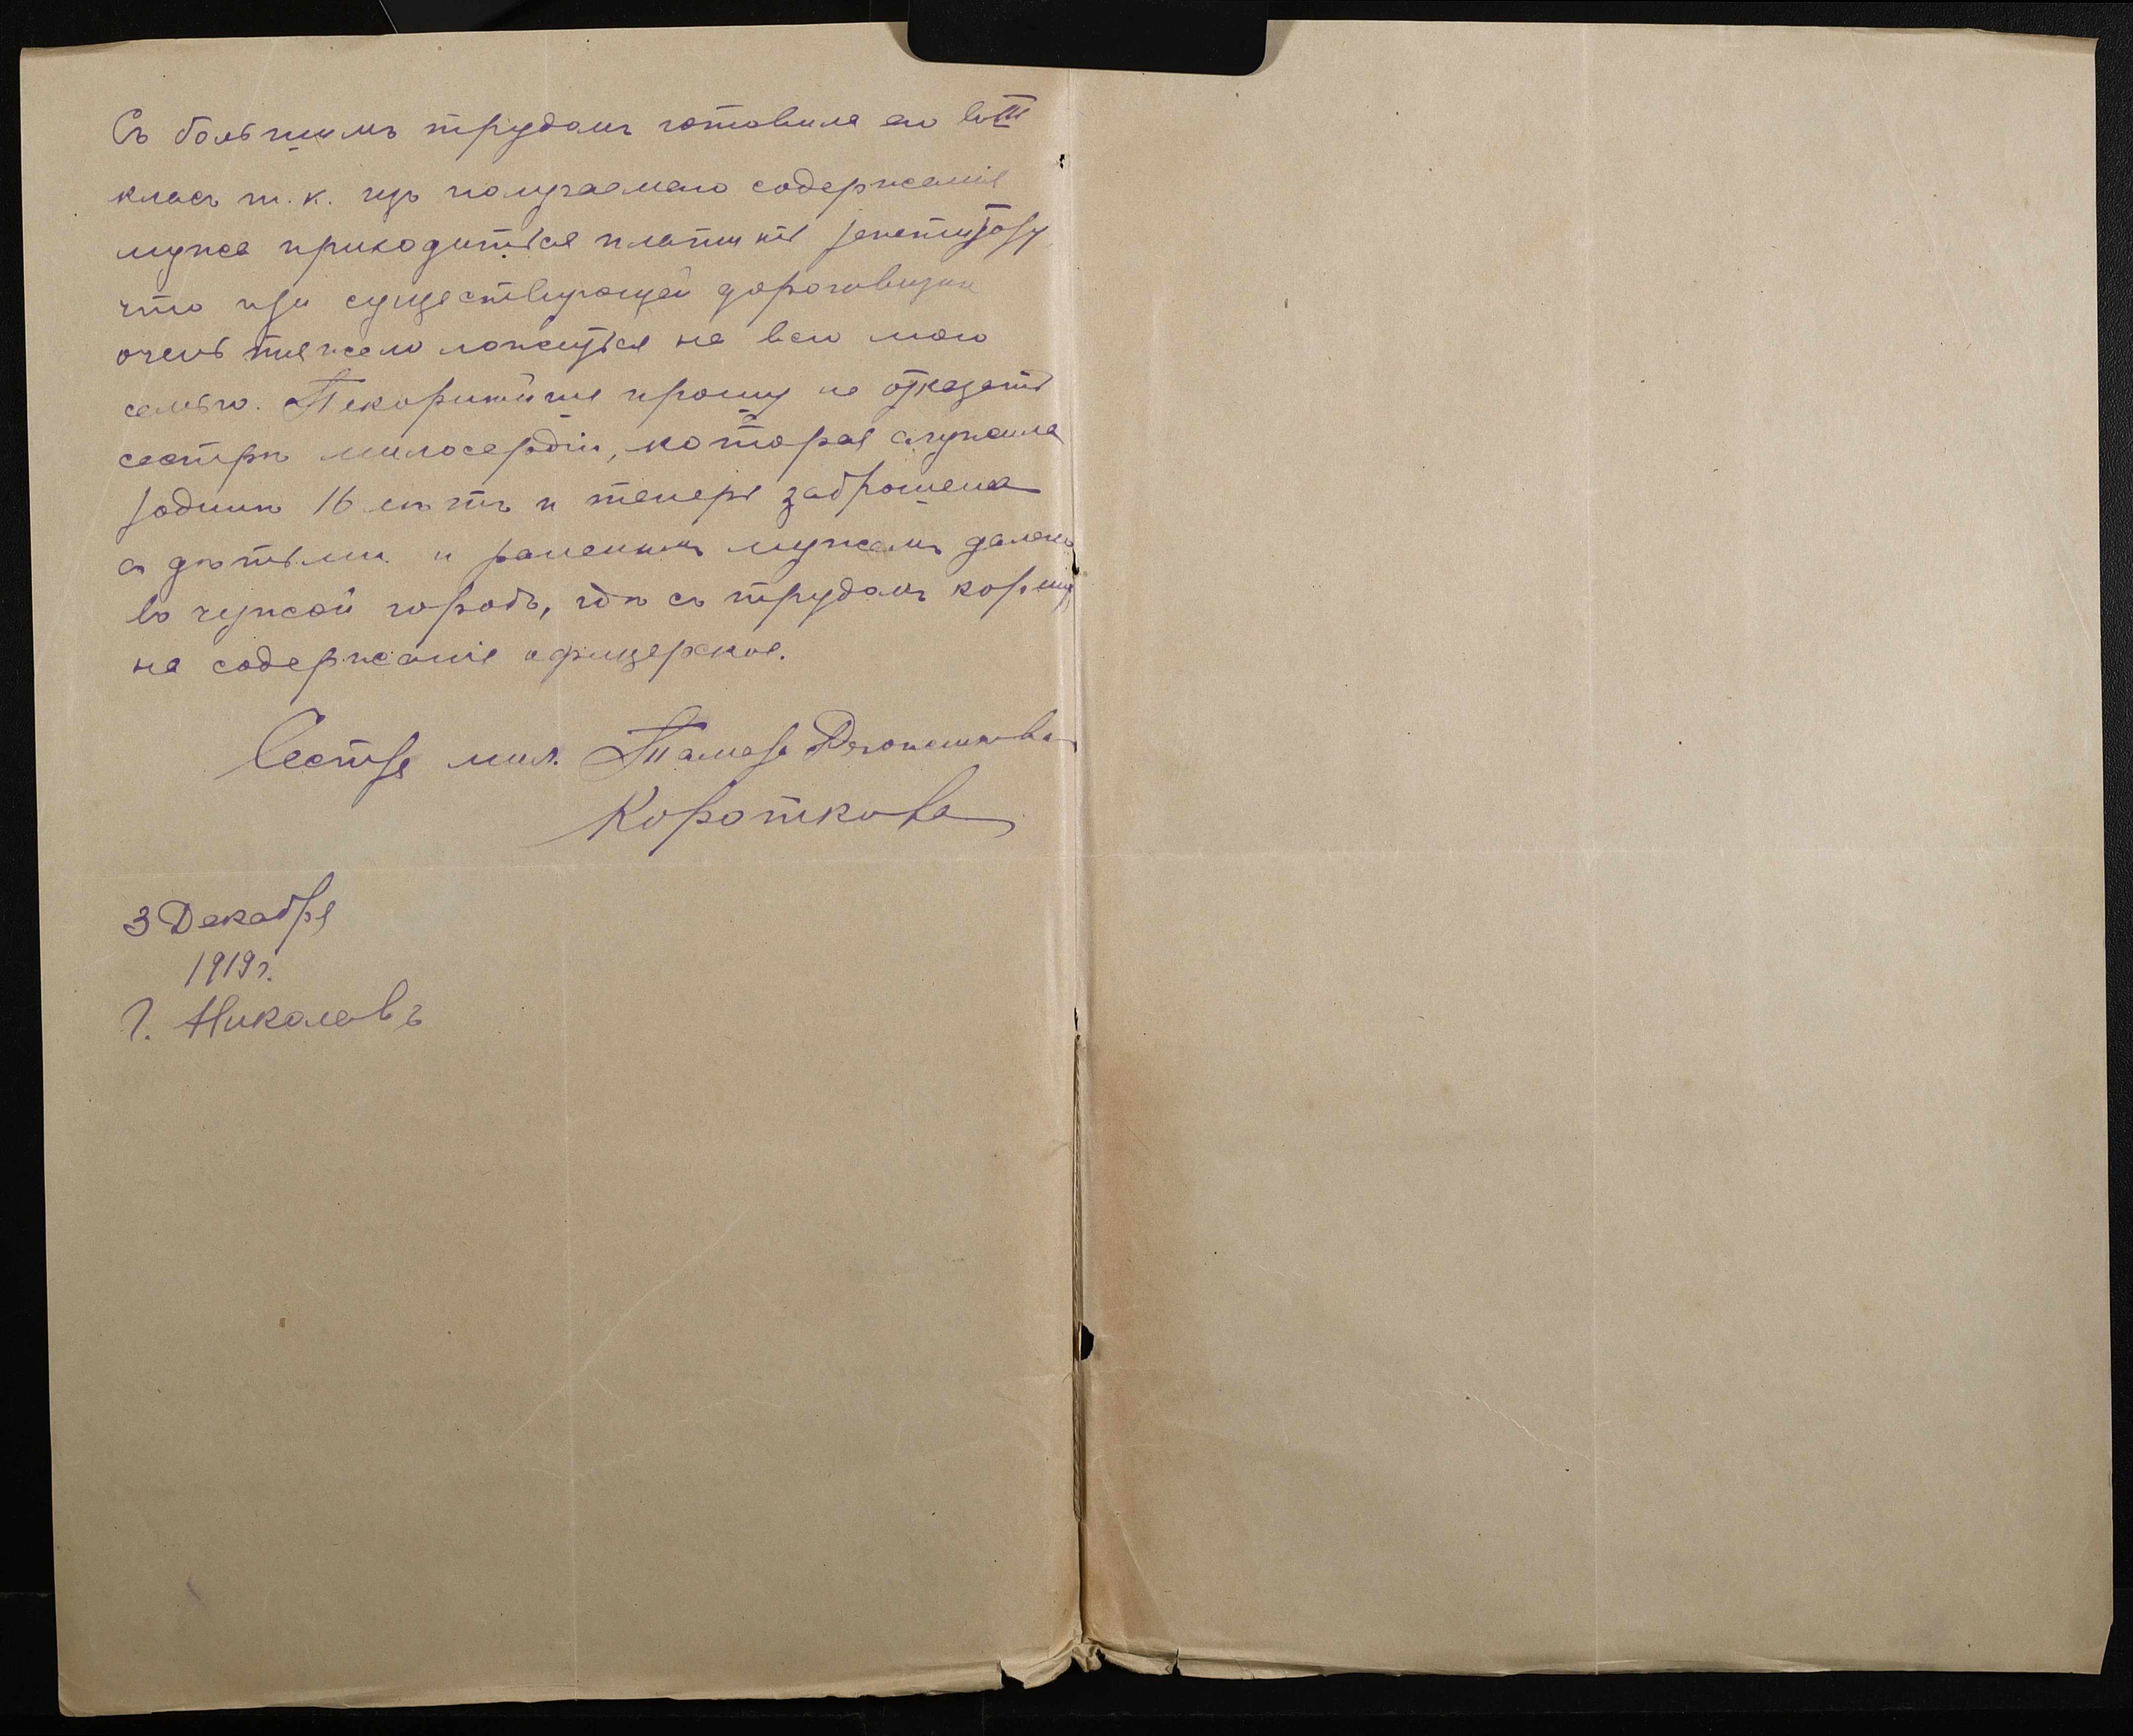 Съ большимъ трудомъ готовила ею въ III
класъ т.к. изъ получаемаго содержанія
мужа приходиться платить репетитору
что при существующей дороговизни
очень тяжело ложиться на всю мою
семью. Покорнѣйше прошу не отказать
сестрѣ милосердія, которая служила
родинѣ 16 лѣтъ и теперь заброшена
съ дѣтьми и раненымъ мужемъ далеко
въ чужой городъ, гдѣ съ трудомъ кормлю
на содержаніе офицерское.
Сестра мил. Тамара
Короткова
3 Декабря
1919 г.
Г. Николаевъ